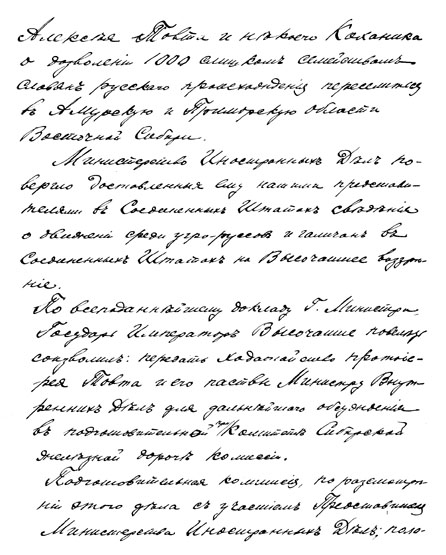 Алексѣя Товта и нѣкоего Коханика
о дозволеніи 1000 слишкомъ семействамъ
славянъ русскаго происхожденія переселиться
въ Амурскую и Приморскую области
Восточной Сибири.
Министерство Иностранныхъ Дѣлъ по-
вергло доставленныя ему нашими представи-
телями въ Соединенныхъ Штатахъ свѣдѣнія
о движеніи среди угро-руссовъ и галичанъ въ
Соединенныхъ Штатахъ на Высочайшее воззрѣ-
ніе.
По всеподданнѣйшему докладу Г. Министра,
Государь Императоръ Высочайше повелѣть
соизволилъ: передать ходатайство протоіе-
рея Товта и его паствы Министру Внут-
реннихъ Дѣлъ для дальнѣйшаго обсужденія
въ подготовительной при Комитетѣ Сибирской
желѣзной дороги комиссіи.
Подготовительная комиссія, по разсмотрѣ-
ніи этого дѣла съ участіемъ Представителя
Министерства Иностранныхъ Дѣлъ, поло-